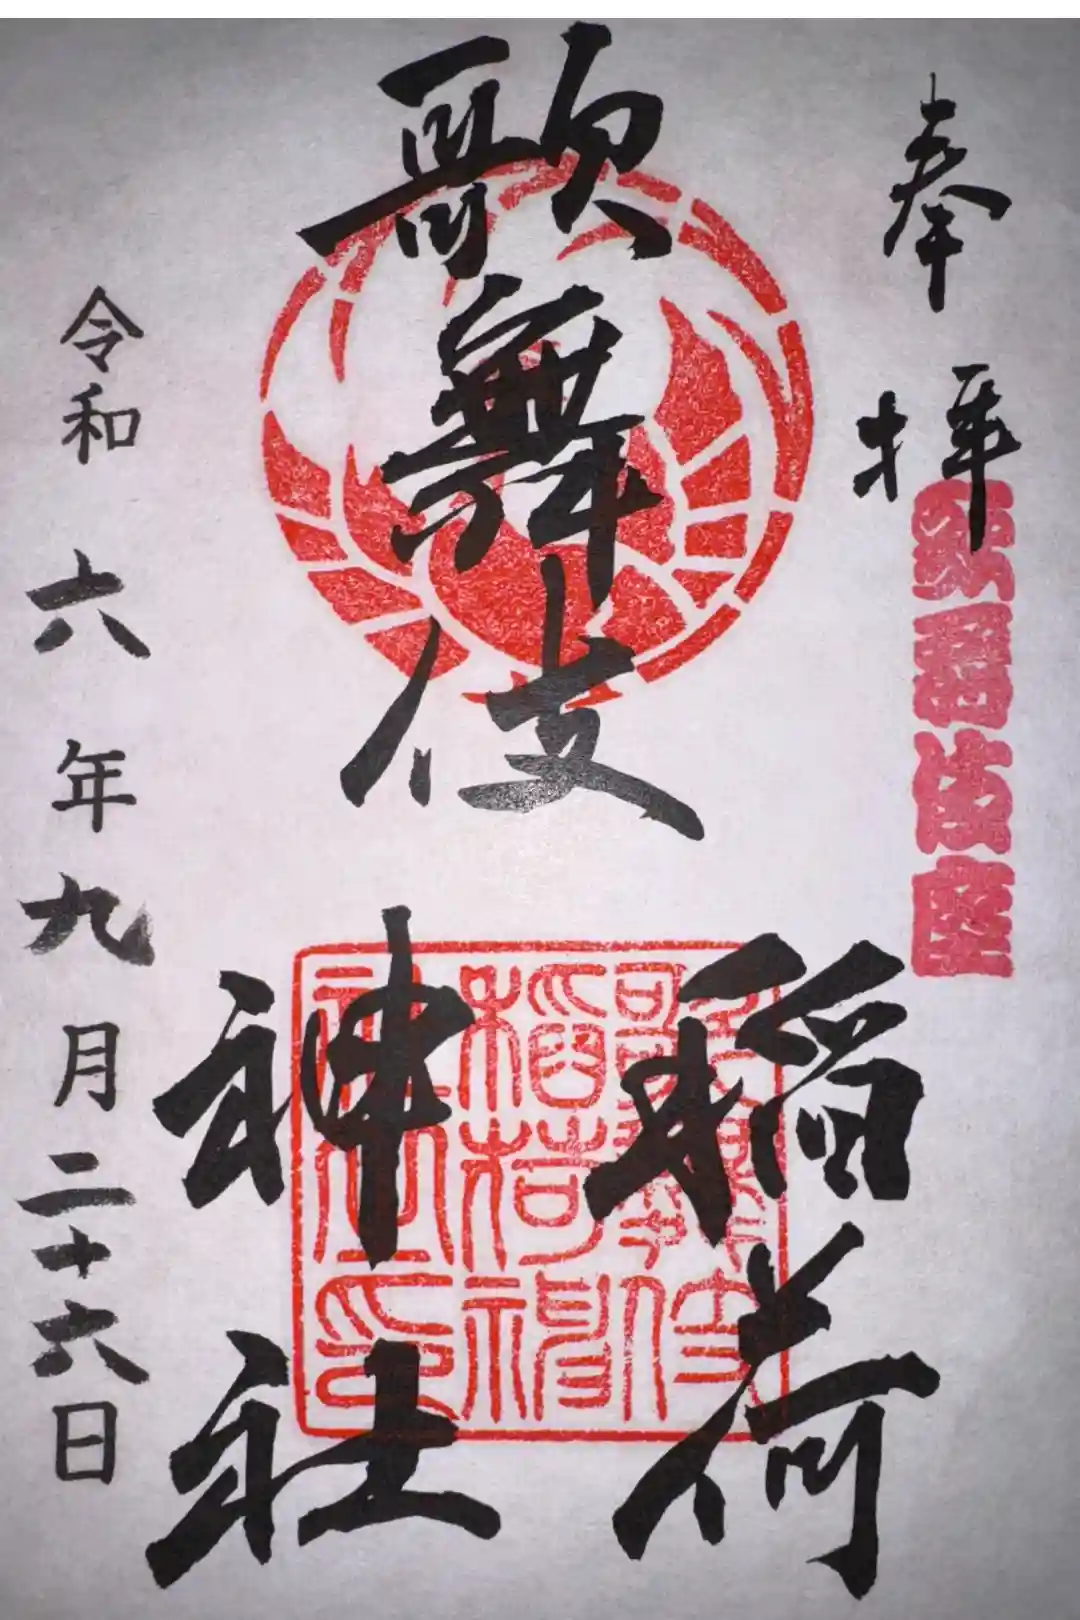 奉拝
歌舞伎座
歌舞伎
稲荷
神社
歌舞伎
稲荷神
社印
令和六年九月二十六日